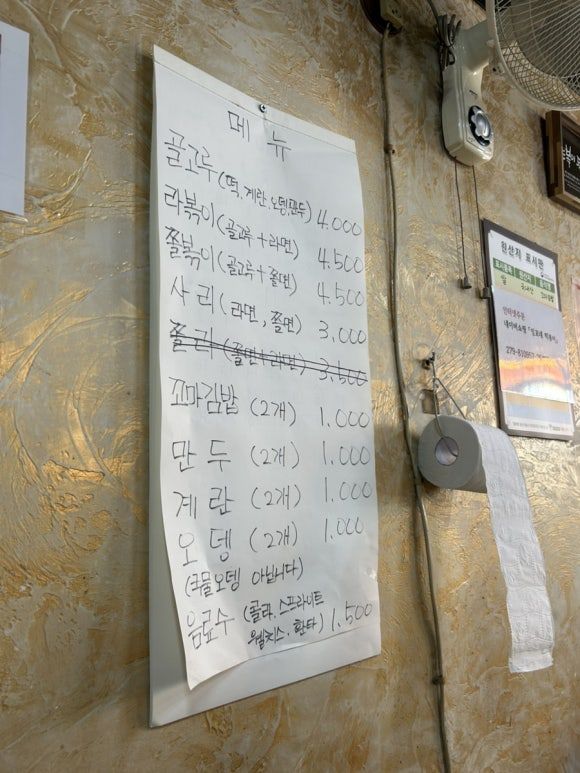 메 뉴
골고루 (떡, 계란, 오뎅, 만두) 4.000
라볶이 (골고루 + 라면) 4.500
쫄볶이 (골고루 + 쫄면) 4.500
사 리 (라면, 쫄면) 3.000
쫄 리 (쫄면+라면) 3.500
꼬마김밥 (2개) 1.000
만 두 (2개) 1.000
계 란 (2개) 1.000
오 뎅 (2개) 1.000
(국물오뎅 아닙니다)
음료수 (콜라. 스프라이트
웰치스. 환타) 1.500
원산지 표시판
쌀 국내산